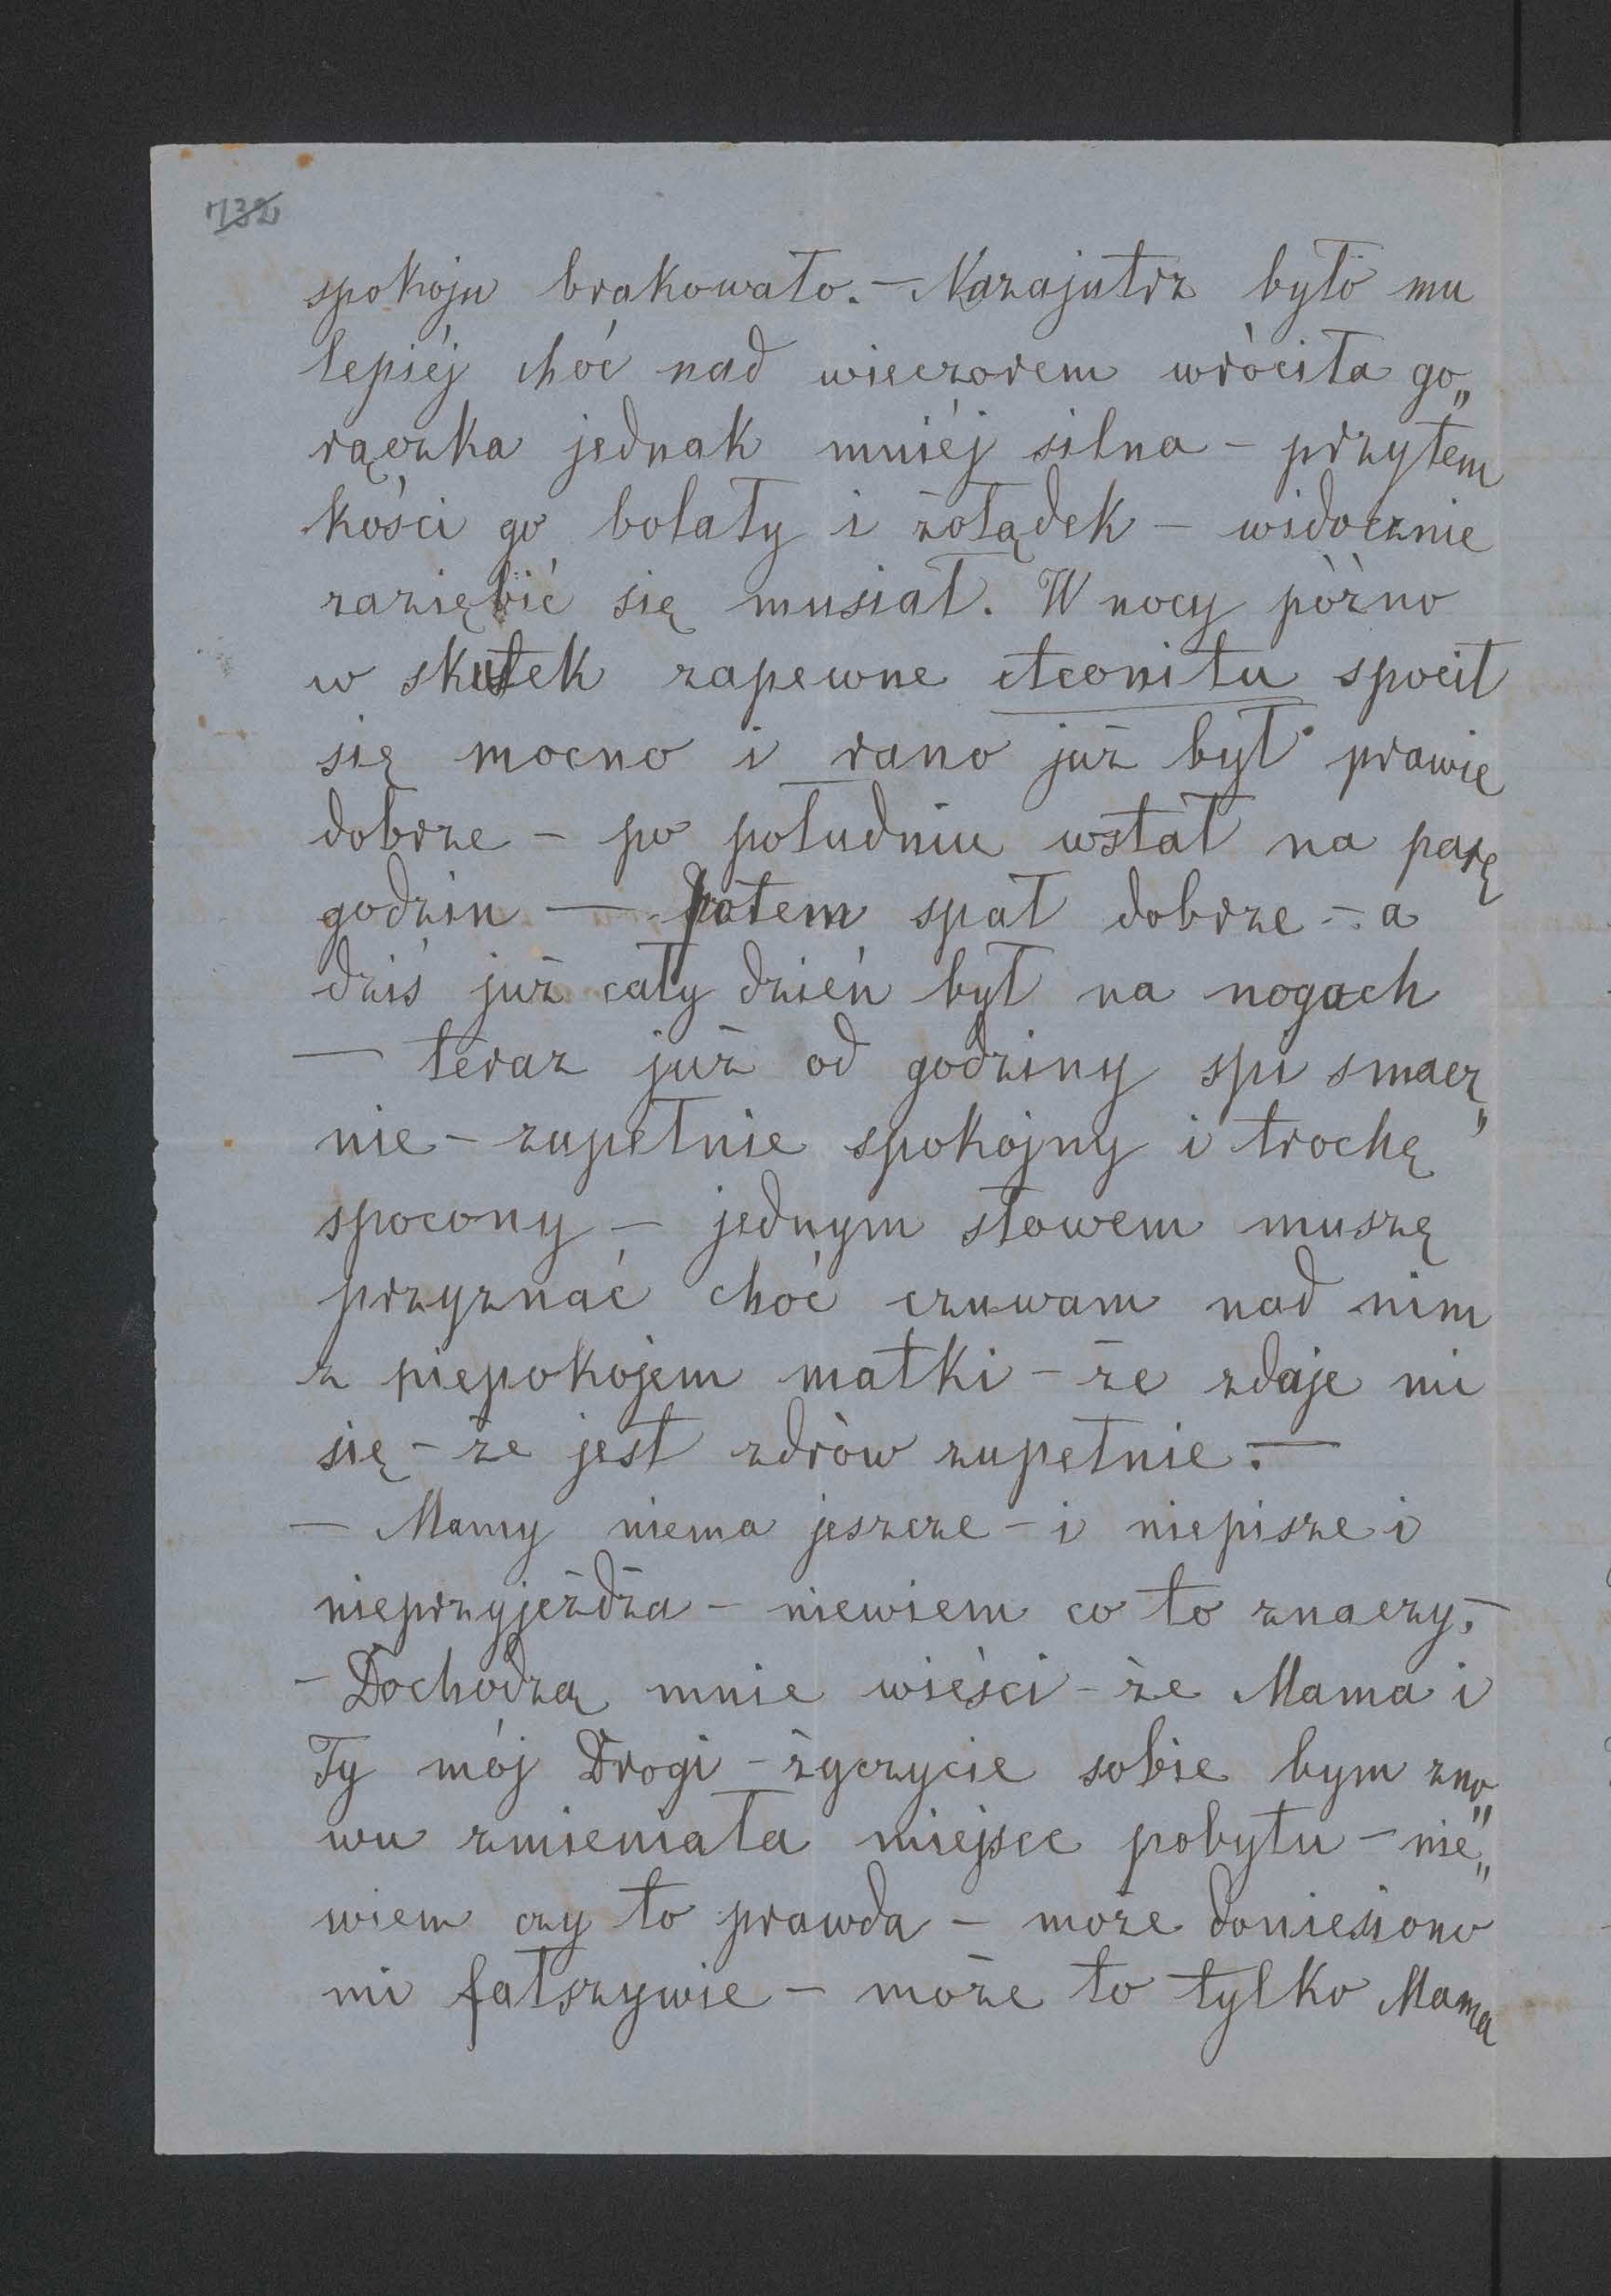 732
spokoju brakowało. — Nazajutrz było mu
lepiéj choć nad wieczorem wróciła go„
rączka jednak mniéj silna – przytem
kości go bolały i żołądek – widocznie
zaziębić się musiał. W nocy późno
w skutek zapewne Aconitu spocił
się mocno i rano już był prawie
dobrze – po południu wstał na parę
godzin — potem spał dobrze – a
dziś już cały dzień był na nogach
— teraz już od godziny spi smacz„
nie – zupełnie spokojny i trochę
spocony – jednym słowem muszę
przyznać choć czuwam nad nim
z niepokojem matki – że zdaje mi
się – że jest zdrów zupełnie. —
— Mamy niema jeszcze – i niepisze i
nieprzyjeżdża – niewiem co to znaczy. –
– Dochodzą mnie wieści – że Mama i
Ty mój Drogi – życzycie sobie bym zno„
wu zmieniała miejsce pobytu – nie„
wiem czy to prawda – może doniesiono
mi fałszywie – może to tylko Mama